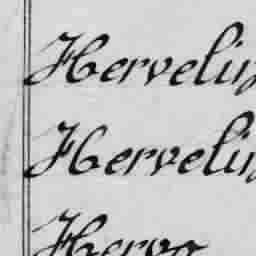 Hervelin
Hervelin
Hervo